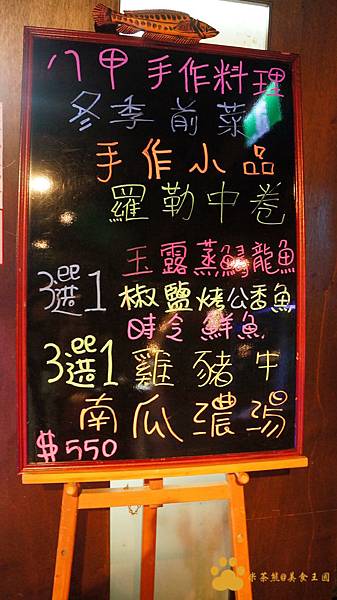 八甲 手作料理
冬季前菜
手作小品
羅勒中卷
玉露蒸鱘龍魚
3選1 椒鹽烤公香魚
時令鮮魚
3選1 雞 豬 牛
南瓜濃湯
$550
米茶熊@美食王國